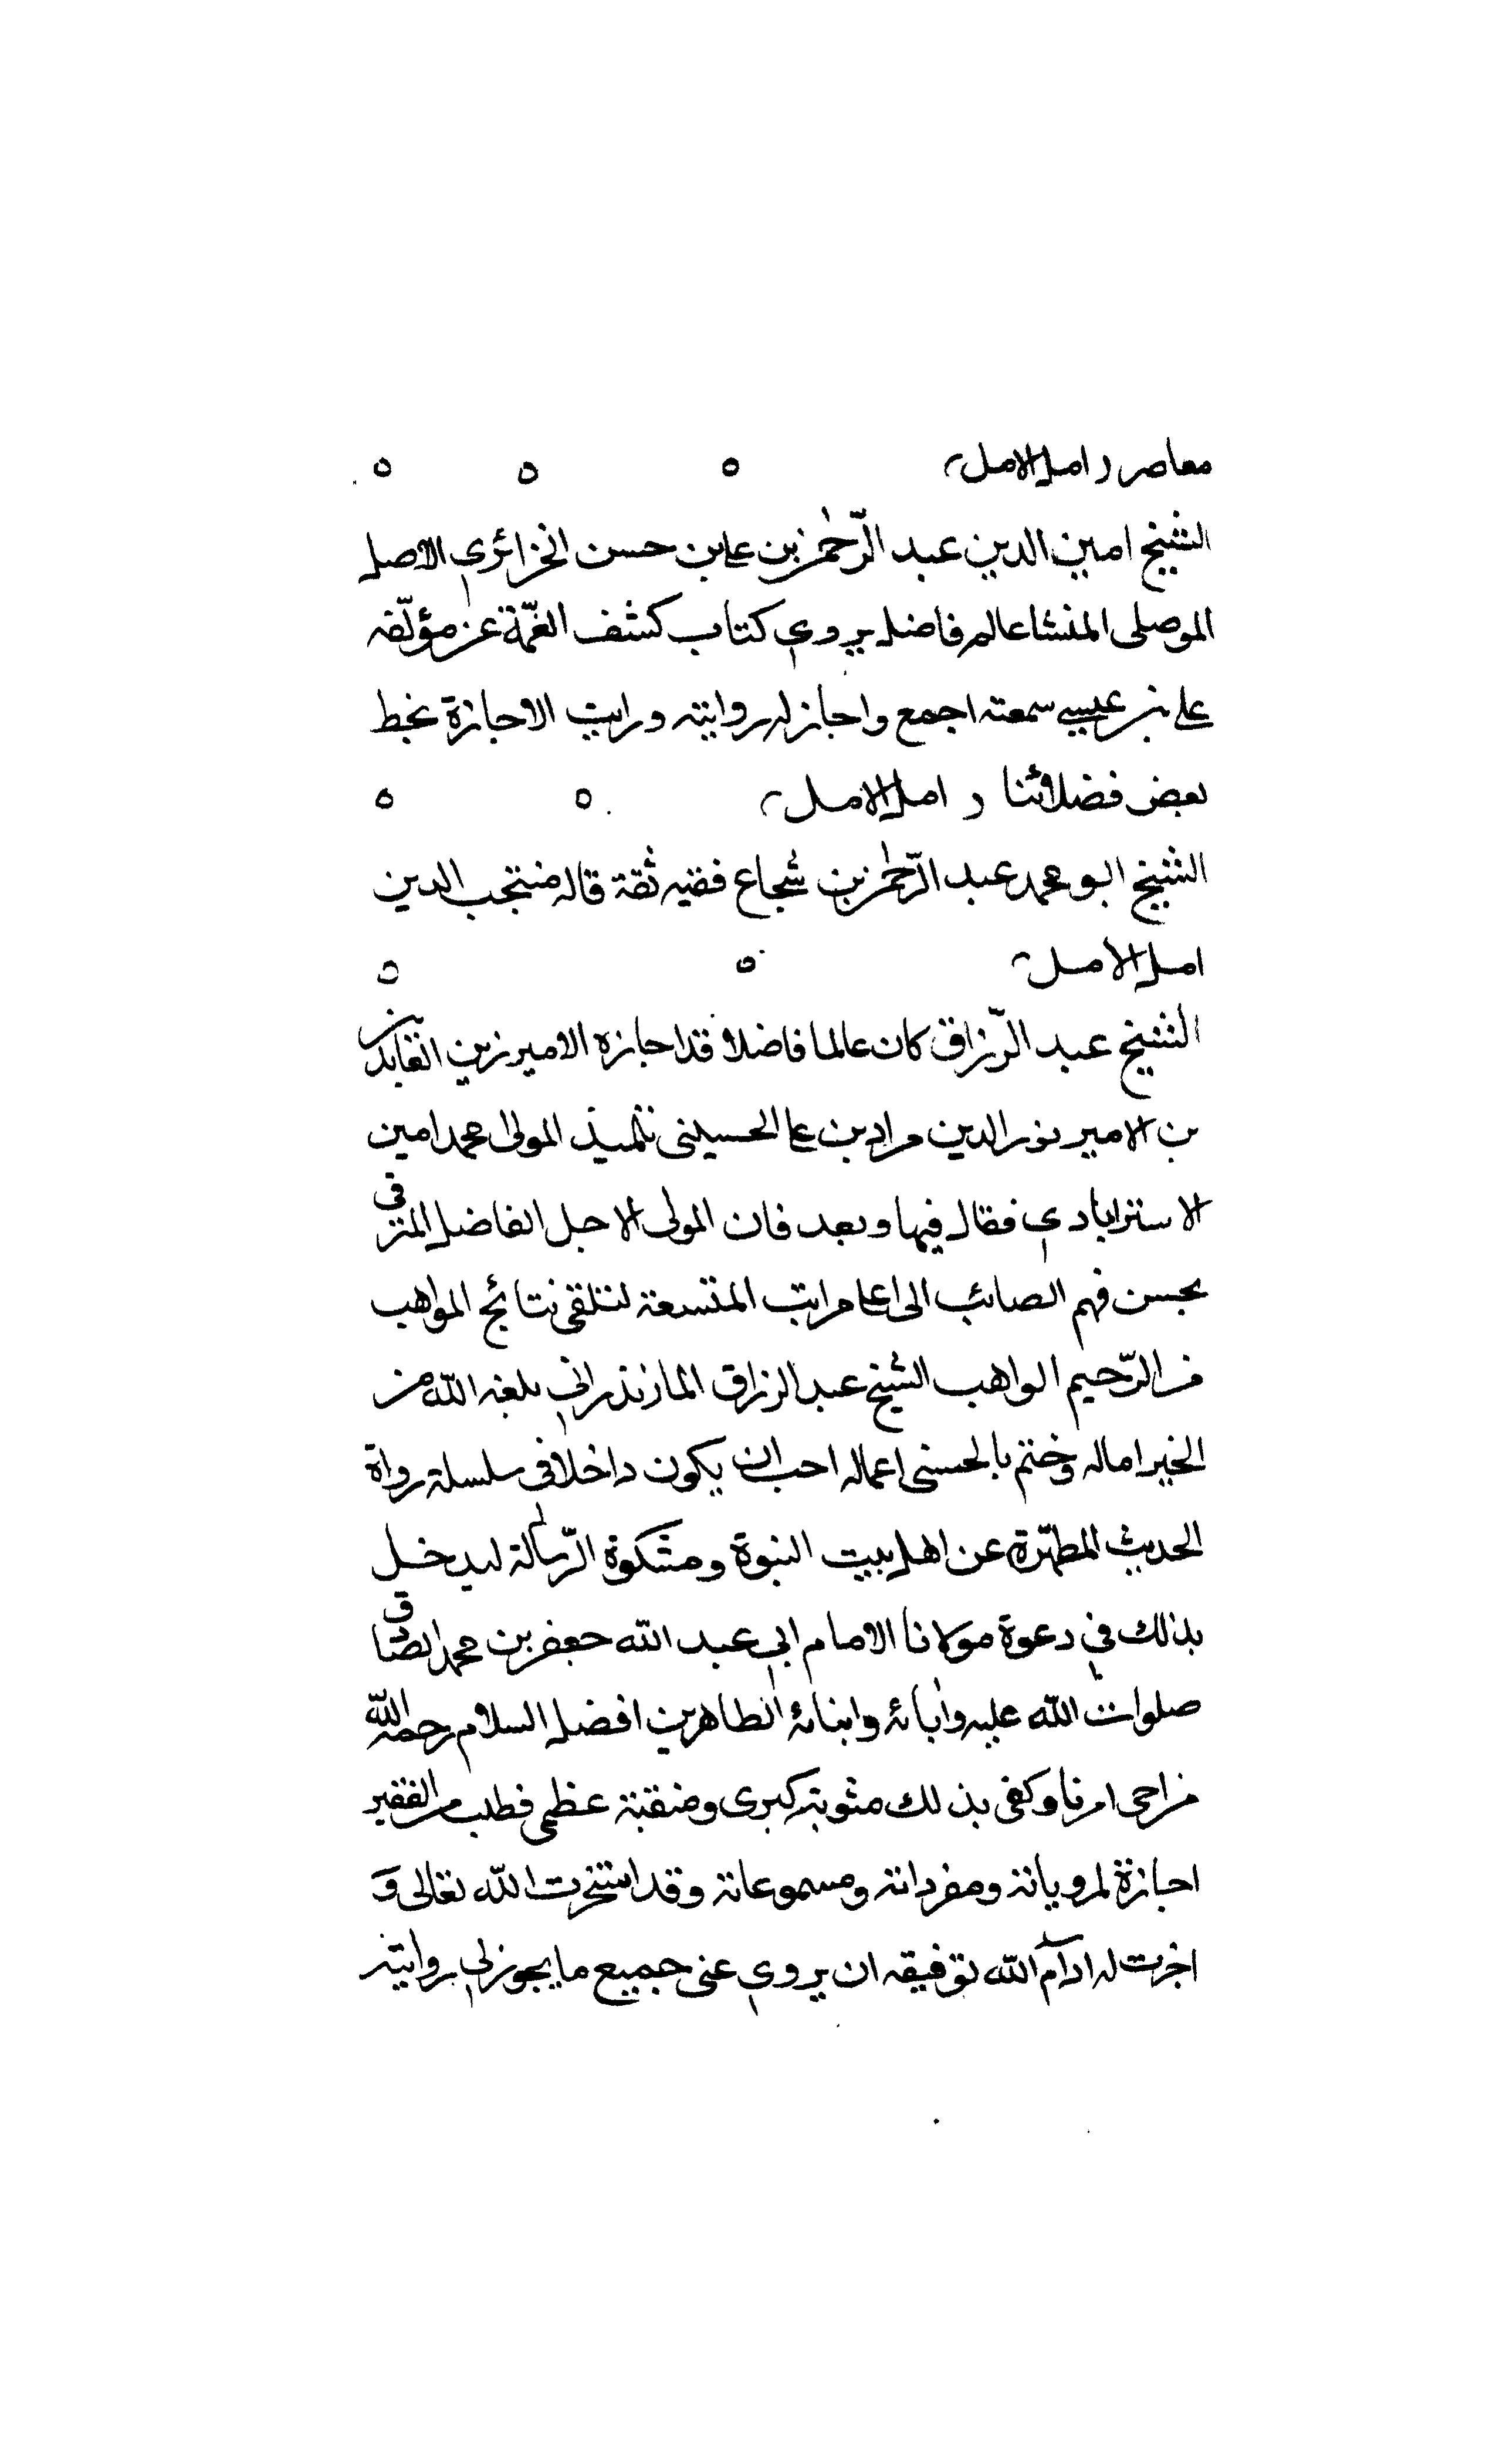 معاصر ر امل الامل ٥ ٥ ٥
الشيخ امين الدين عبد الرّحمٰن بن علي بن حسن الجزائري الاصل
الموصلى المنشا عالم فاضل يروي كتاب كشف الغمّة عن مؤلّفه
علي بن عيسى سمعته اجمع واجاز له روايته ورايت الاجازة بخط
بعض فضلائنا ر امل الامل ٥ ٥
الشيخ ابو محمد عبد الرّحمٰن بن شجاع فقيه ثقة قاله منتجب الدين
امل الامل ٥ ٥
الشيخ عبد الرّزاق كان عالما فاضلا قد اجازه الامير زين العابدين
بن الامير نور الدين مراد بن علي الحسيني تلميذ المولى محمد امين
الاسترابادي فقال فيها وبعد فان المولى الاجل الفاضل المترقى
بحسن فهم الصائب الى اعلى مراتب المتسعة لتلقى نتائج المواهب
من الرّحيم الواهب الشيخ عبد الرزاق المازندراني بلغه الله من
الخير اماله وختم بالحسنى اعماله احب ان يكون داخلا في سلسلة رواة
الحديث المطهّرة عن اهل بيت النبوة ومشكوة الرّسالة ليدخل
بذلك في دعوة مولانا الامام ابي عبد الله جعفر بن محمد الصادق
صلوات الله عليه وآبائه وابنائه الطاهرين افضل السلام رحم الله
من احيى امرنا وكفى بذلك مثوبة كبرى ومنقبة عظمى فطلب من الفقير
اجازة لمروياته ومفرداته ومسموعاته وقد استخرت الله تعالى و
اجزت له ادام الله توفيقه ان يروي عني جميع ما يجوز لي روايته